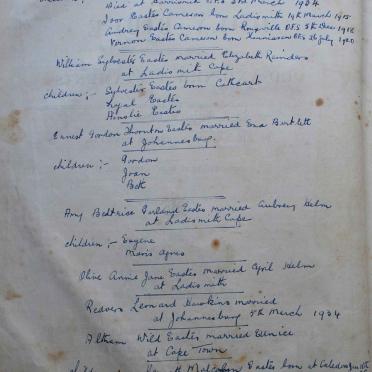 Died at Harrismith OFS 3rd March 1934
Ivor Eastes Cameron born Ladismith 14th March 1915
Audrey Eastes Cameron born OFS 5th Dec. 1918
Vernon Eastes Cameron born OFS 26 July 1920
William Sylvester Eastes married Elizabeth Reinders
at Ladismith Cape
children ;- Sylvester Eastes born Cathcart
Lyal Eastes
Ainslie Eastes
Ernest Gordon Thornton Eastes married Ena Bartlett
at Johannesburg.
children ;- Gordon
Joan
Bett
Amy Beatrice Garland Eastes married Aubrey Helm
at Ladismith Cape
children ;- Eugene
Maris Agnes
Olive Annie Jane Eastes married Cyril Helm
at Ladismith
Redvers Leonard Hawkins married
at Johannesburg 5th March 1934
Altham Wild Eastes married Eunice
at Cape Town
Malcolm Eastes born at